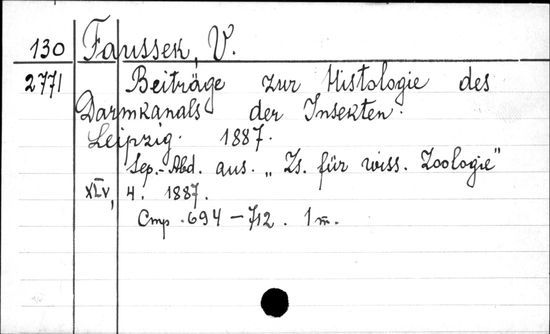 130 Faussek, V.
2771 Beiträge zur Histologie des
Darmkanals der Insekten.
Leipzig. 1887.
Sep.-Abd. aus. „Zs. für wiss. Zoologie"
XLV, 4. 1887.
Стр. 694–712. 1 т.